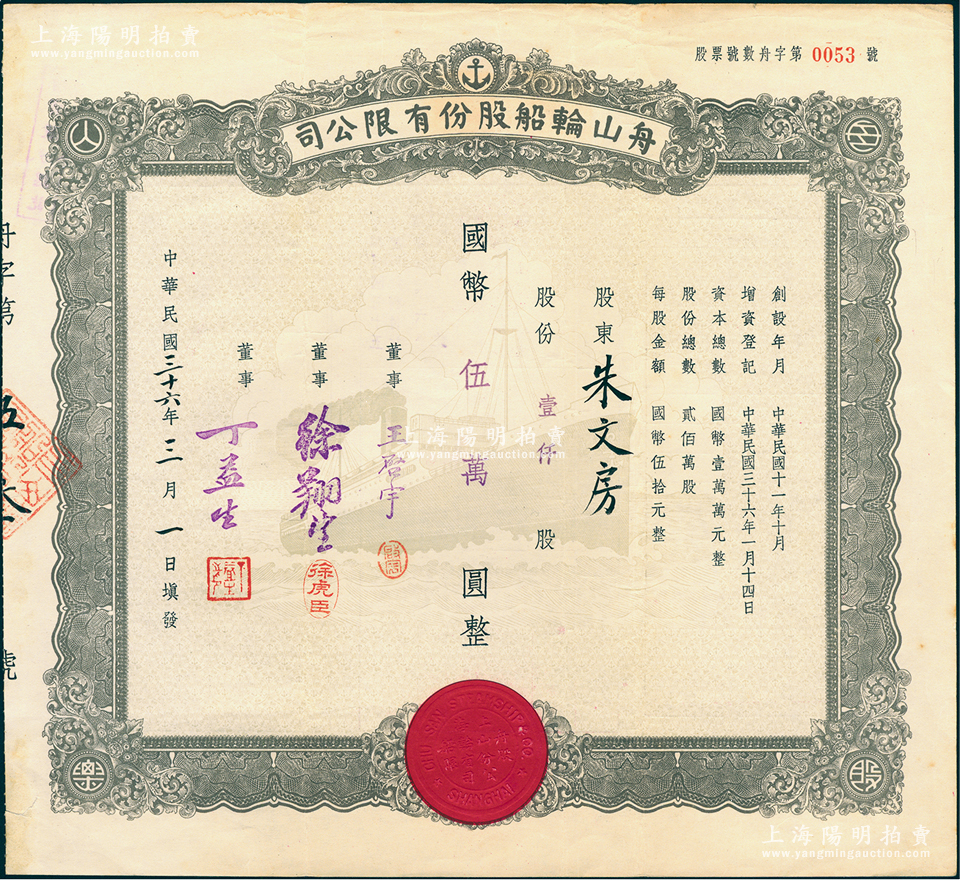 上海陽明拍賣
www.yangmingauction.com
股票號數舟字第 0053 號
舟山輪船股份有限公司
創設年月 中華民國十一年十月
增資登記 中華民國三十六年一月十四日
資本總數 國幣壹萬萬元整
股份總數 貳佰萬股
每股金額 國幣伍拾元整
股東 朱文房
股份 壹仟 股
國幣 伍萬 圓整
董事 王啓宇
董事
徐虎臣
董事 丁益生
中華民國三十六年三月一日塡發
舟字第
號
CHU SAN STEAMSHIP CO.
SHANGHAI
上海陽明拍賣
www.yangmingauction.com
上海陽明拍賣
www.yangmingauction.com